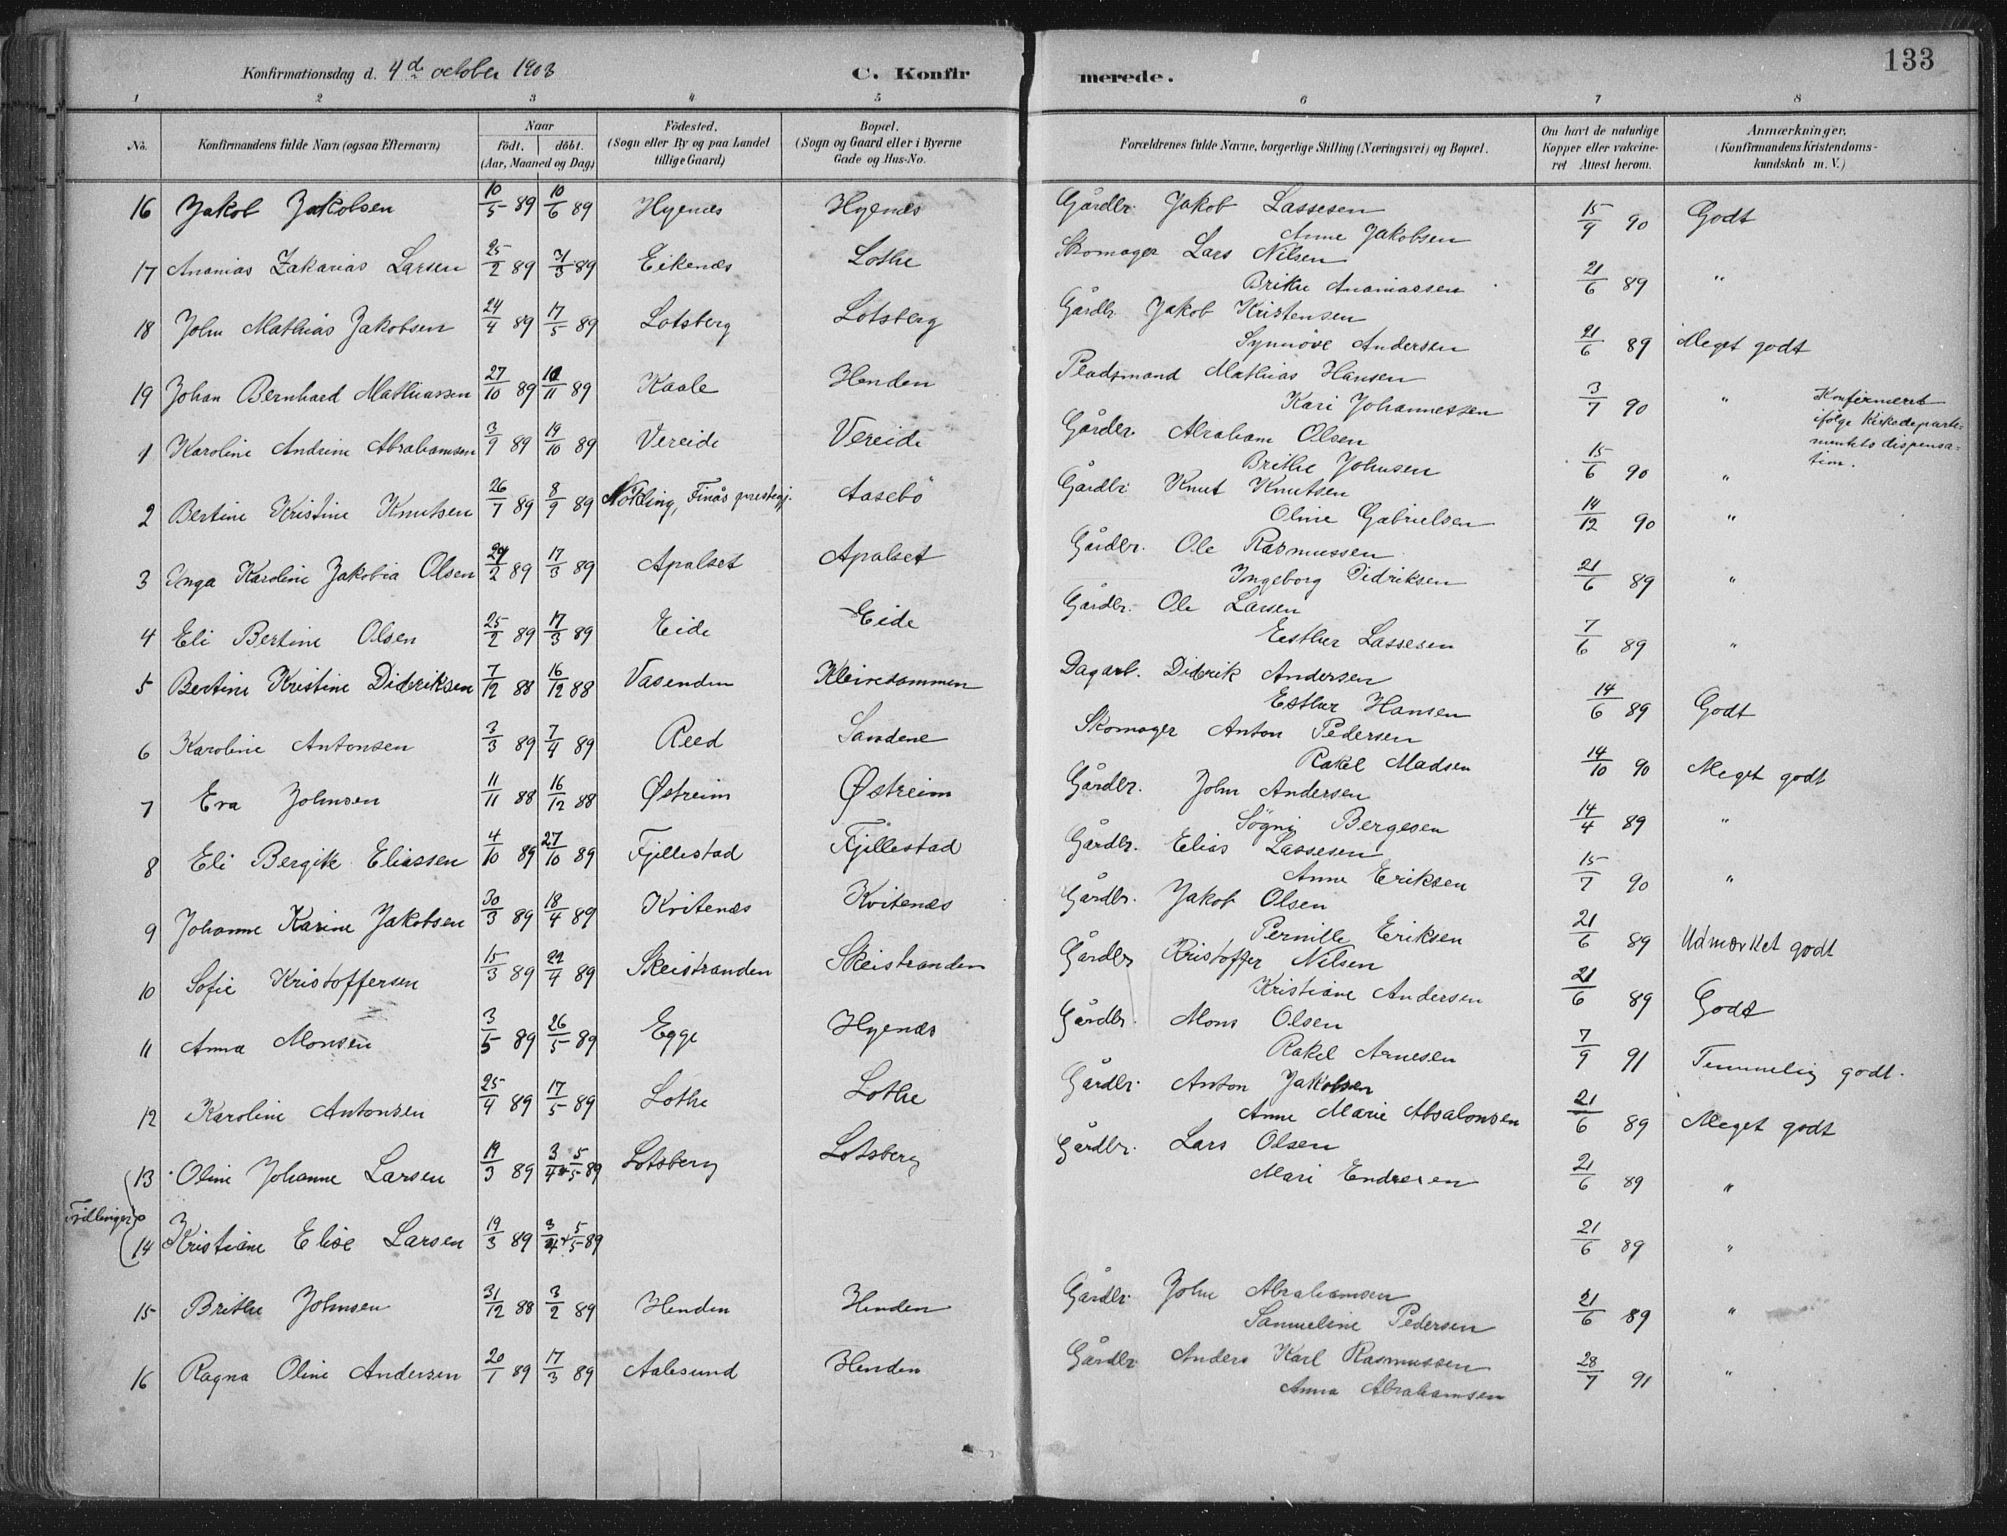 133
Konfirmationsdag d. 4de october 1903 C. Konfirmerede.
1 2 3 4 5 6 7 8
No. Konfirmandens fulde Navn (ogsaa Efternavn) Naar født. døbt. (Aar, Maaned og Dag) Fødested. (Sogn eller By og paa Landet tillige Gaard) Bopæl. (Sogn og Gaard eller i Byerne Gade og Hus-No. Forældrenes fulde Navne, borgerlige Stilling (Næringsvei) og Bopæl. Om havt de naturlige Kopper eller vakcineret Attest herom. Anmærkninger. (Konfirmandens Kristendomskundskab m. V.)
16 Jakob Jakobsen 10/5 89 10/6 89 Hyenæs Hyenæs Gårdbr. Jakob Lassesen
Anne Jakobsen 15/9 90 Godt
17 Ananias Zakarias Larsen 25/2 89 31/3 89 Eikenæs Lothe Skomager Lars Nilsen
Brithe Ananiassen 21/6 89 "
18 John Mathias Jakobsen 24/4 89 17/5 89 Lotsberg Lotsberg Gårdbr. Jakob Kristensen
Synnöve Andersen 21/6 89 Meget godt
19 Johan Bernhard Mathiassen 27/10 89 10/11 89 Kaale Henden Pladsmand Mathias Hansen
Kari Johannessen 3/7 90 " Konfirmeret
ifølge Kirkedeparte-
mentets dispensa-
tion.
1 Karoline Andrine Abrahamsen 3/9 89 19/10 89 Vereide Vereide Gårdbr. Abraham Olsen
Brithe Johnsen 15/6 90 "
2 Bertine Kristine Knutsen 26/7 89 8/9 89 Nökling, Finås prestegj. Aasebö Gårdbr. Knut Knutsen
Oline Gabrielsen 14/12 90 "
3 Inga Karoline Jakobia Olsen 24/2 89 17/3 89 Apalset Apalset Gårdbr. Ole Rasmussen
Ingeborg Didriksen 21/6 89 "
4 Eli Bertine Olsen 25/2 89 17/3 89 Eide Eide Gårdbr. Ole Larsen
Eesther Lassesen 7/6 89 "
5 Bertine Kristine Didriksen 7/12 88 16/12 88 Vasenden Kleivedammen Dagarb. Didrik Andersen
Esther Hansen 14/6 89 Godt
6 Karoline Antonsen 3/3 89 7/4 89 Reed Sandene Skomager Anton Pedersen
Rakel Madsen 14/10 90 Meget godt
7 Eva Johnsen 11/11 88 16/12 88 Østreim Østreim Gårdbr. John Andersen
Sögni Bergesen 14/4 89 "
8 Eli Bergitte Eliassen 4/10 89 27/10 89 Fjellestad Fjellestad Gårdbr. Elias Lassesen
Anne Eriksen 15/7 90 "
9 Johanne Karine Jakobsen 30/3 89 18/4 89 Kvitenæs Kvitenæs Gårdbr. Jakob Olsen
Pernille Eriksen 21/6 89 Udmærket godt
10 Sofie Kristoffersen 15/3 89 22/4 89 Skeistranden Skeistranden Gårdbr. Kristoffer Nilsen
Kristiane Andersen 21/6 89 Godt
11 Anna Monsen 3/5 89 26/5 89 Egge Hyenæs Gårdbr. Mons Olsen
Rakel Arnesen 7/9 91 Temmelig godt.
12 Karoline Antonsen 25/4 89 17/5 89 Lothe Lothe Gårdbr. Anton Jakobsen
Anne Marie Absalonsen 21/6 89 Meget godt
13 Oline Johanne Larsen 19/3 89 3/4 + 5/5 89 Lotsberg Lotsberg Gårdbr. Lars Olsen
Mari Endresen 21/6 89 "
Tvillinger
14 Kristiane Elise Larsen 19/3 89 3/4 + 5/5 89 21/6 89 "
15 Brithe Johnsen 31/12 88 3/2 89 Henden Henden Gårdbr. John Abrahamsen
Samueline Pedersen 21/6 89 "
16 Ragna Oline Andersen 20/1 89 17/3 89 Aalesund Henden Gårdbr. Anders Karl Rasmussen
Anna Abrahamsen 28/7 91 "